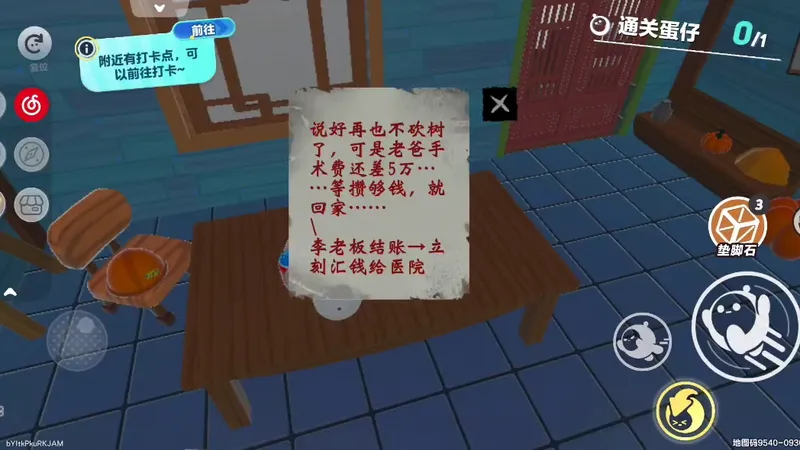 前往
附近有打卡点，可
以前往打卡~
通关蛋仔 0/1
说好再也不砍树
了，可是老爸手
术费还差5万…
…等攒够钱，就
回家……
\
李老板结账→立
刻汇钱给医院
3
垫脚石
bYItkPkuRKJAM
地图码9540-0930